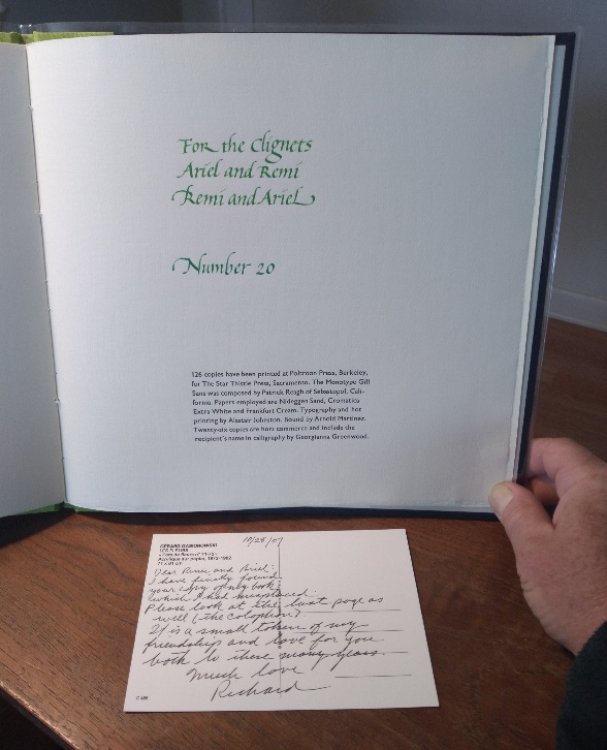 For the Clignets
Ariel and Remi
Remi and Ariel
Number 20
126 copies have been printed at Poltroon Press, Berkeley,
for The Star Thistle Press, Sacramento. The Monotype Gill
Sans was composed by Patrick Reagh of Sebastopol, Cali-
fornia. Papers employed are Nideggen Sand, Cromatica
Extra White and Frankfurt Cream. Typography and hot
printing by Alastair Johnston. Bound by Arnold Martinez.
Twenty-six copies are hors commerce and include the
recipient's name in calligraphy by Georgianna Greenwood.
10/28/07
Dear Remi and Ariel:
I have finally found
your copy of my book
which I had misplaced.
Please look at the last page as
well (the colophon).
It is a small token of my
friendship and love for you
both lo these many years.
Much love
Richard